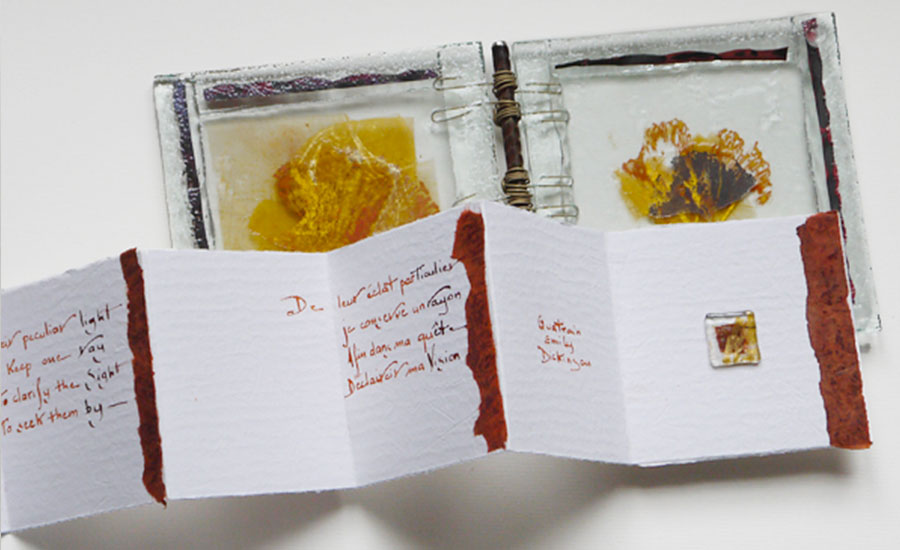 peculiar light
Keep one ray
To clarify the sight
To seek them by —
De leur éclat particulier
Je conserve un rayon
Afin dans ma quête
D'éclaircir ma Vision
Quatrain
Emily
Dickinson